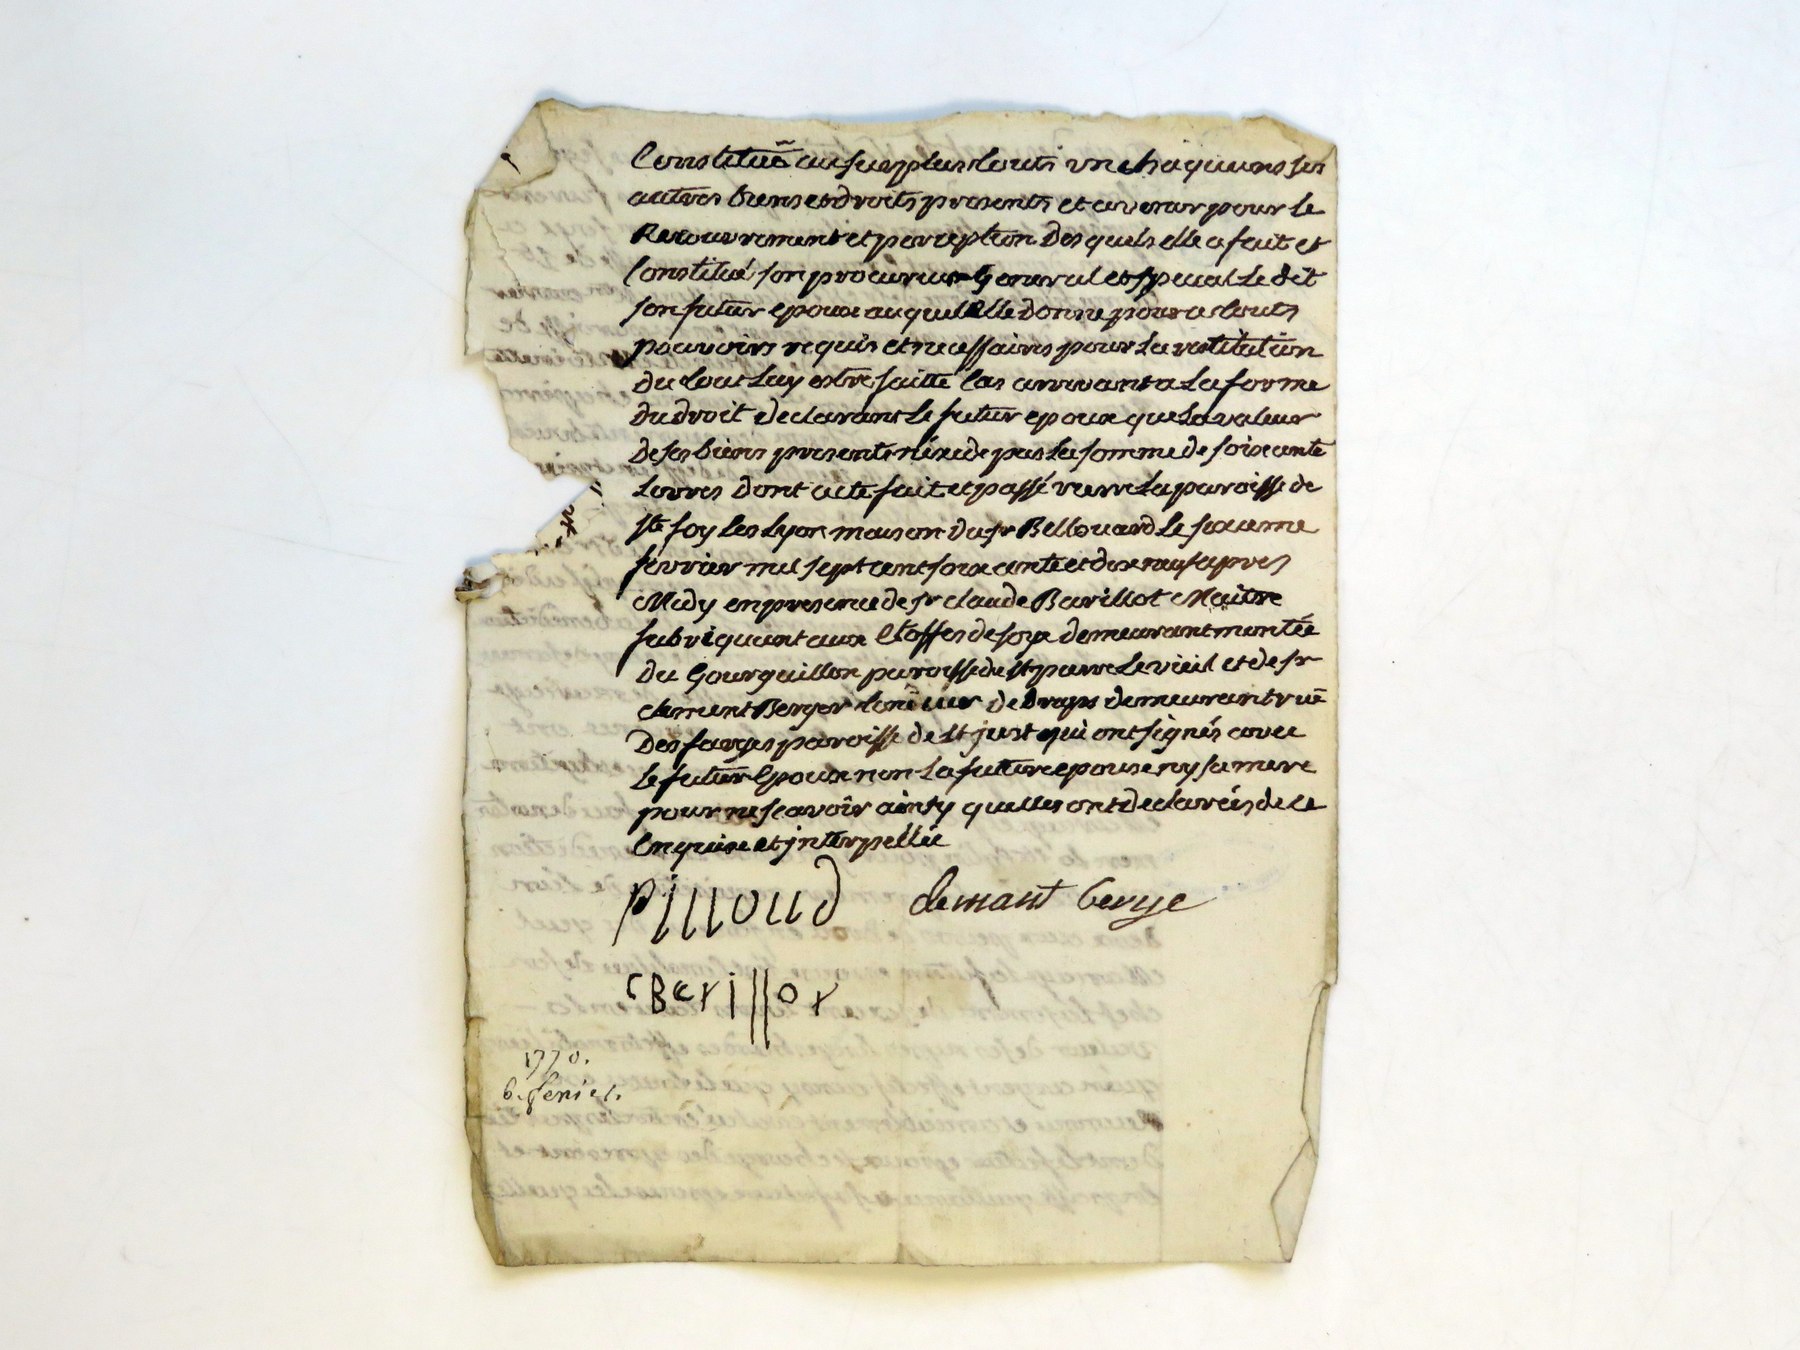 Constituë au surplus touts un chaquuns ses
autres biens et droits presents et avenir pour le
Recouvrement et perception Desquels elle a fait et
Constitué son procureur General et special Le dit
son futur epoux auquel Elle Donne pour ce touts
pouvoirs requis et necessaires pour La restitution
Du tout Luy estre faitte Cas arrivant a La forme
Du droit Declarant Le futur epoux que La valeur
De ses biens presents n'exede pas La somme de soixante
Livres Dont acte fait et passé rierre La paroisse de
Ste foy Les Lyon maison du sr Bellouard Le sixieme
fevrier mil sept cent soixante et dix apres
Midy en presence de sr claude Barillot Maitre
fabriquant aux Etoffes de soye demeurant montée
Du Gourguillon paroisse de st pierre Le vieil et de sr
clement Berger Toñdeur De Draps demeurant ruë
Des farges paroisse de st just qui ont signés avec
Le futur Epoux non La future epouse ny sa mere
pour ne sçavoir ainsy quelles ont declarées de ce
Enquise et jnterpellée
pilloud clemant berge
CBerillot
1770.
6. fevrier.